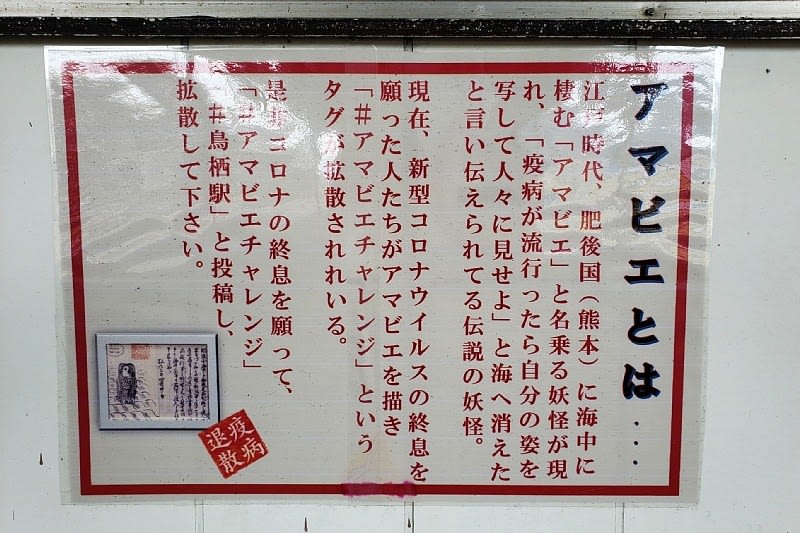 アマビエとは・・・
江戸時代、肥後国（熊本）に海中に
棲む「アマビエ」と名乗る妖怪が現
れ、「疫病が流行ったら自分の姿を
写して人々に見せよ」と海へ消えた
と言い伝えられてる伝説の妖怪。
現在、新型コロナウイルスの終息を
願った人たちがアマビエを描き
「＃アマビエチャレンジ」という
タグが拡散されれいる。
是非コロナの終息を願って、
「＃アマビエチャレンジ」
「＃鳥栖駅」と投稿し、
拡散して下さい。
疫病
退散